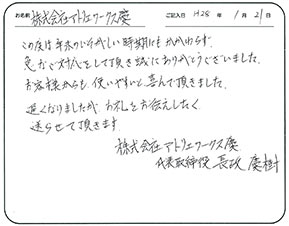 お名前 株式会社アトリエワークス慶 ご記入日 H28 年 1 月 21 日
この度は年末のいそがしい時期にもかかわらず、
急な対応をして頂き誠にありがとうございました。
お客様からも使いやすいと喜んで頂けました。
遅くなりましたが、お礼をお伝えしたく
送らせて頂きます。
株式会社アトリエワークス慶
代表取締役 長政 慶樹